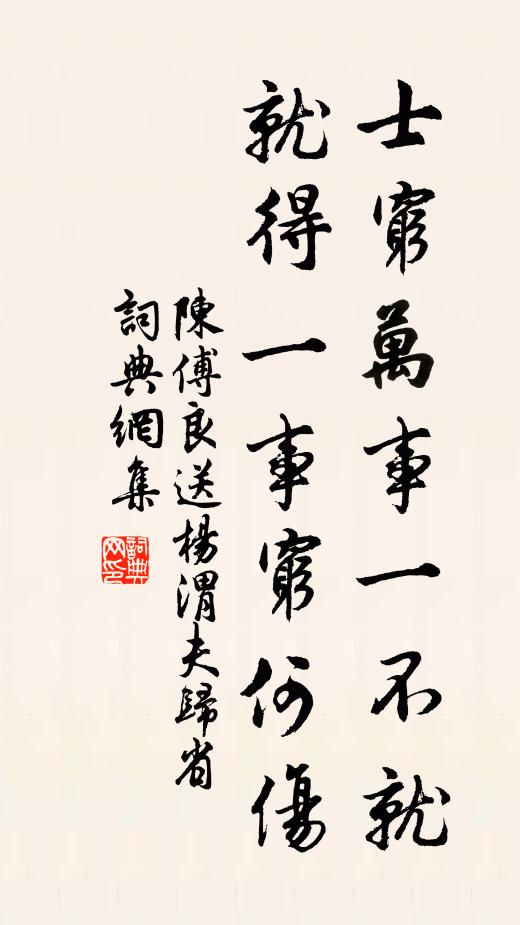 士窮萬事一不就
就得一事窮何傷
陳傅良送楊渭夫歸省
詞典網集
詞典
网印